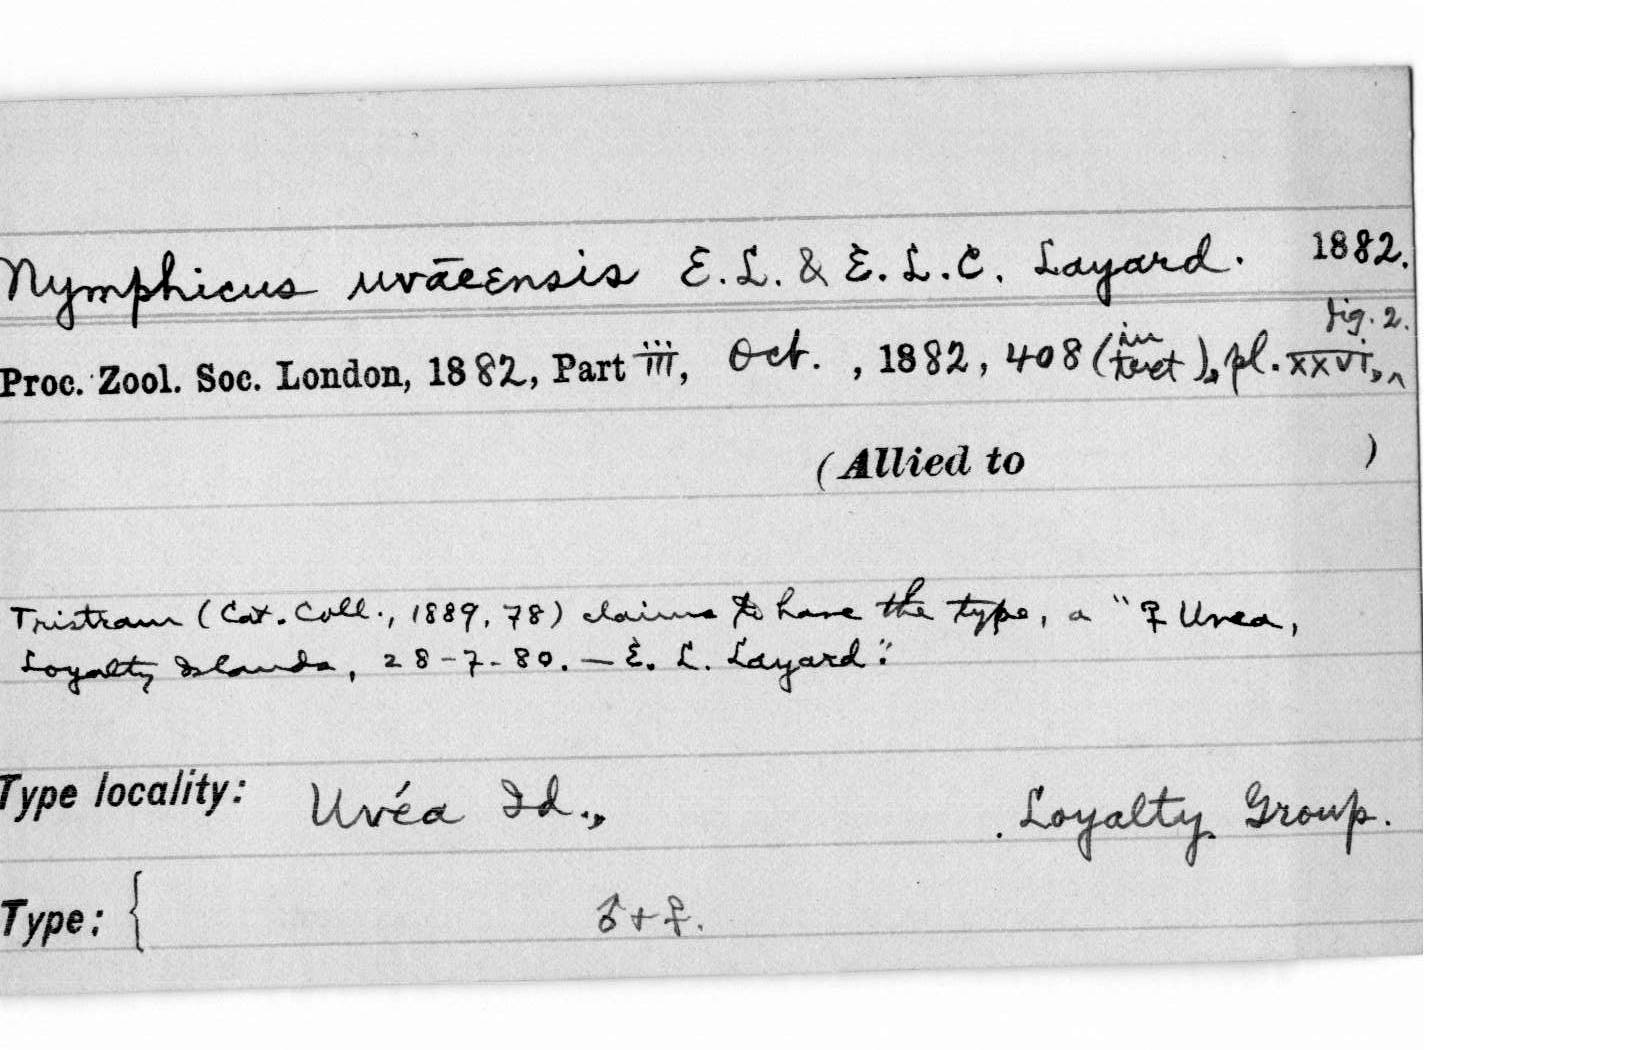 Nymphicus uvāeensis E.L. & E.L.C. Layard. 1882.
Proc. Zool. Soc. London, 1882, Part iii, Oct. , 1882, 408 (in text), pl. xxvi, fig. 2.
(Allied to )
Tristram (Cat. Coll., 1889, 78) claims to have the type, a "♀ Uvea,
Loyalty Islands, 28-7-80. — E. L. Layard".
Type locality: Uvéa Id., Loyalty Group.
Type: { ♂ + ♀.